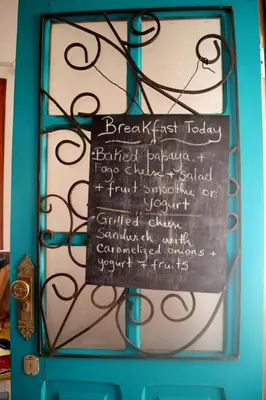 Breakfast Today
- Baked papaya +
Fogo cheese + salad
+ fruit smoothie or
yogurt
- Grilled cheese
Sandwich with
Caramelized onions +
yogurt + fruits